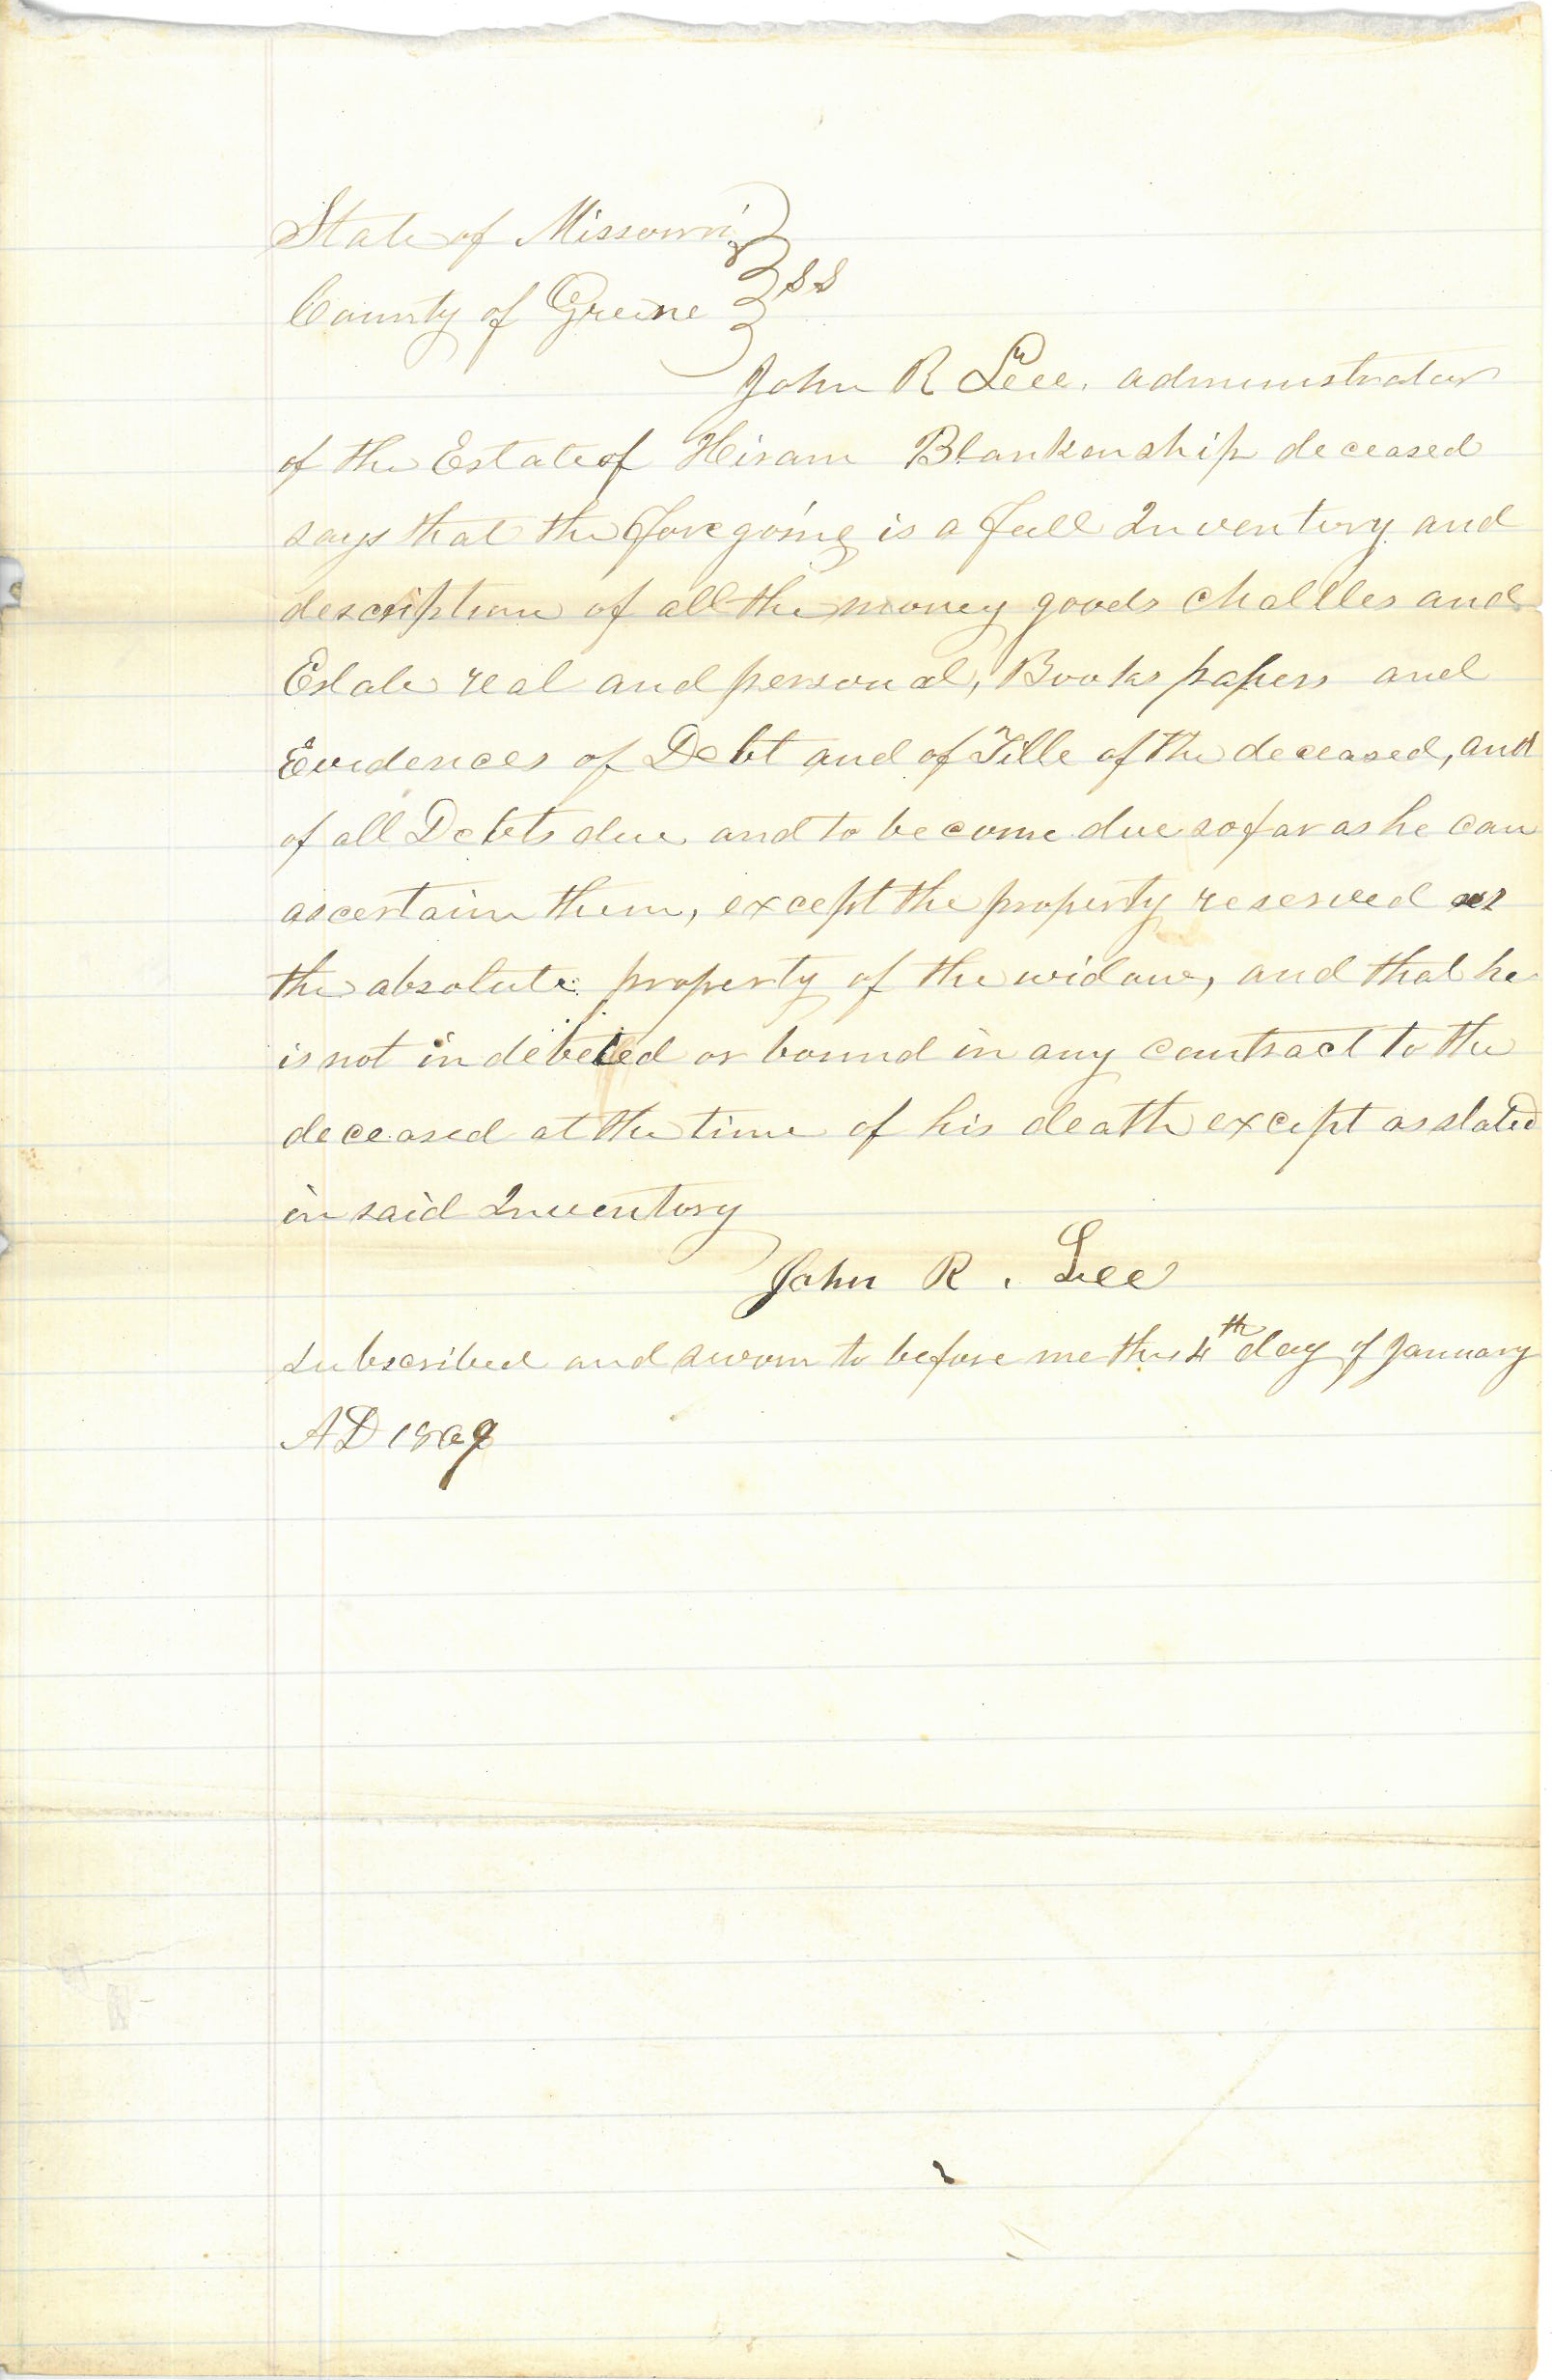 State of Missouri
County of Greene } SS
John R Lee, administrator
of the Estate of Hiram Blankenship deceased
says that the foregoing is a full Inventory and
description of all the money goods Chattles and
Estate real and personal, Books papers and
Evidences of Debt and of Title of the deceased, and
of all Debts due and to become due so far as he can
ascertain them, except the property reserved as
the absolute property of the widow, and that he
is not indebeted or bound in any contract to the
deceased at the time of his death except as stated
in said Inventory
John R. Lee
subscribed and sworn to before me this 4th day of January
AD 1869